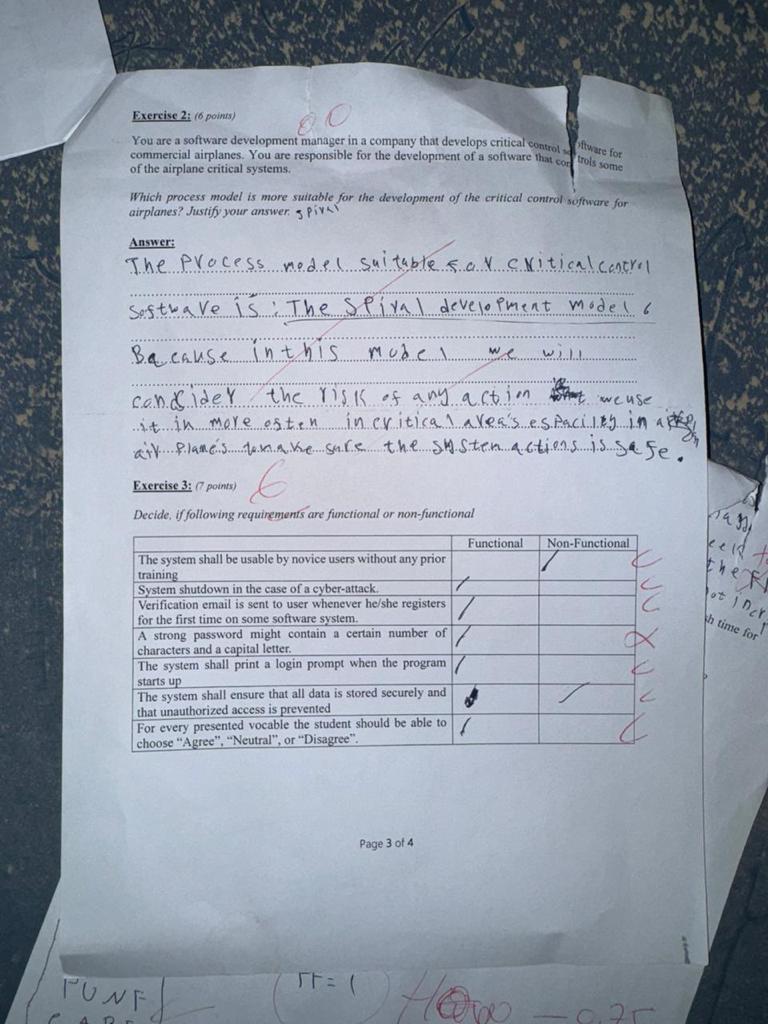 Exercise 2: (6 points)
00
You are a software development manager in a company that develops critical control software for
commercial airplanes. You are responsible for the development of a software that controls some
of the airplane critical systems.
Which process model is more suitable for the development of the critical control software for
airplanes? Justify your answer. spiral
Answer:
The Process model suitable for critical control
software is: The Spiral development model
Because in this model we will
consider the risk of any action we use
it in more often in critical area's espacilly in
air plane's to make sure the system actions is safe.
Exercise 3: (7 points)
6
Decide, if following requirements are functional or non-functional
Functional Non-Functional
The system shall be usable by novice users without any prior
training
System shutdown in the case of a cyber-attack.
Verification email is sent to user whenever he/she registers
for the first time on some software system.
A strong password might contain a certain number of
characters and a capital letter.
The system shall print a login prompt when the program
starts up
The system shall ensure that all data is stored securely and
that unauthorized access is prevented
For every presented vocable the student should be able to
choose “Agree”, “Neutral”, or “Disagree”.
Page 3 of 4
the
h time for